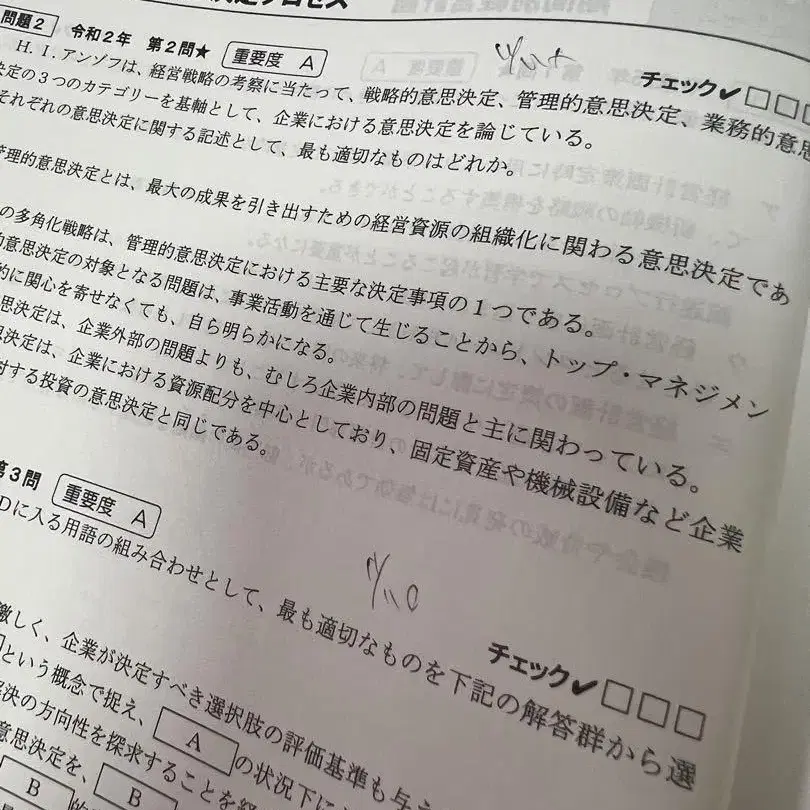 決定プロセス
問題2 令和2年 第2問★ 重要度 A
チェック✔□□□
H.I.アンゾフは、経営戦略の考察に当たって、戦略的意思決定、管理的意思決定、業務的意思
決定の3つのカテゴリーを基軸として、企業における意思決定を論じている。
それぞれの意思決定に関する記述として、最も適切なものはどれか。
管理的意思決定とは、最大の成果を引き出すための経営資源の組織化に関わる意思決定であ
の多角化戦略は、管理的意思決定における主要な決定事項の1つである。
的意思決定の対象となる問題は、事業活動を通じて生じることから、トップ・マネジメン
的に関心を寄せなくても、自ら明らかになる。
思決定は、企業外部の問題よりも、むしろ企業内部の問題と主に関わっている。
思決定は、企業における資源配分を中心としており、固定資産や機械設備など企業
対する投資の意思決定と同じである。
第3問 重要度 A
チェック✔□□□
Dに入る用語の組み合わせとして、最も適切なものを下記の解答群から選
激しく、企業が決定すべき選択肢の評価基準も与え
という概念で捉え、 A の状況下に
決の方向性を探求することを経
意思決定を、 B
B 的